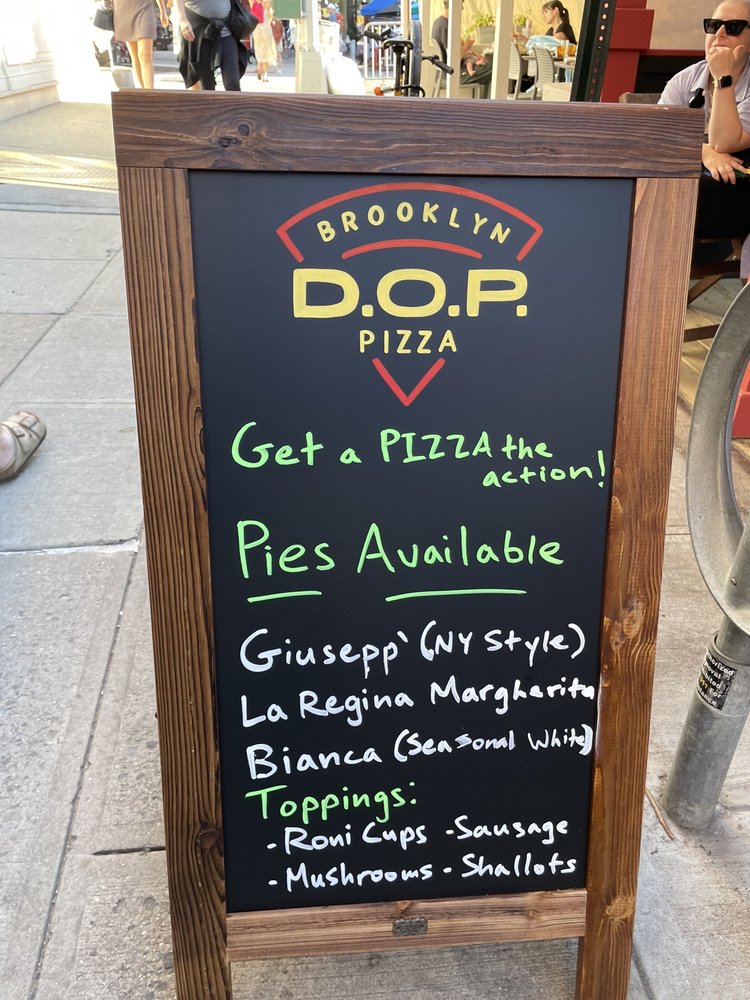 BROOKLYN
D.O.P.
PIZZA
Get a PIZZA the
action!
Pies Available
Giusepp' (NY Style)
La Regina Margherita
Bianca (Seasonal White)
Toppings:
- Roni Cups - Sausage
- Mushrooms - Shallots